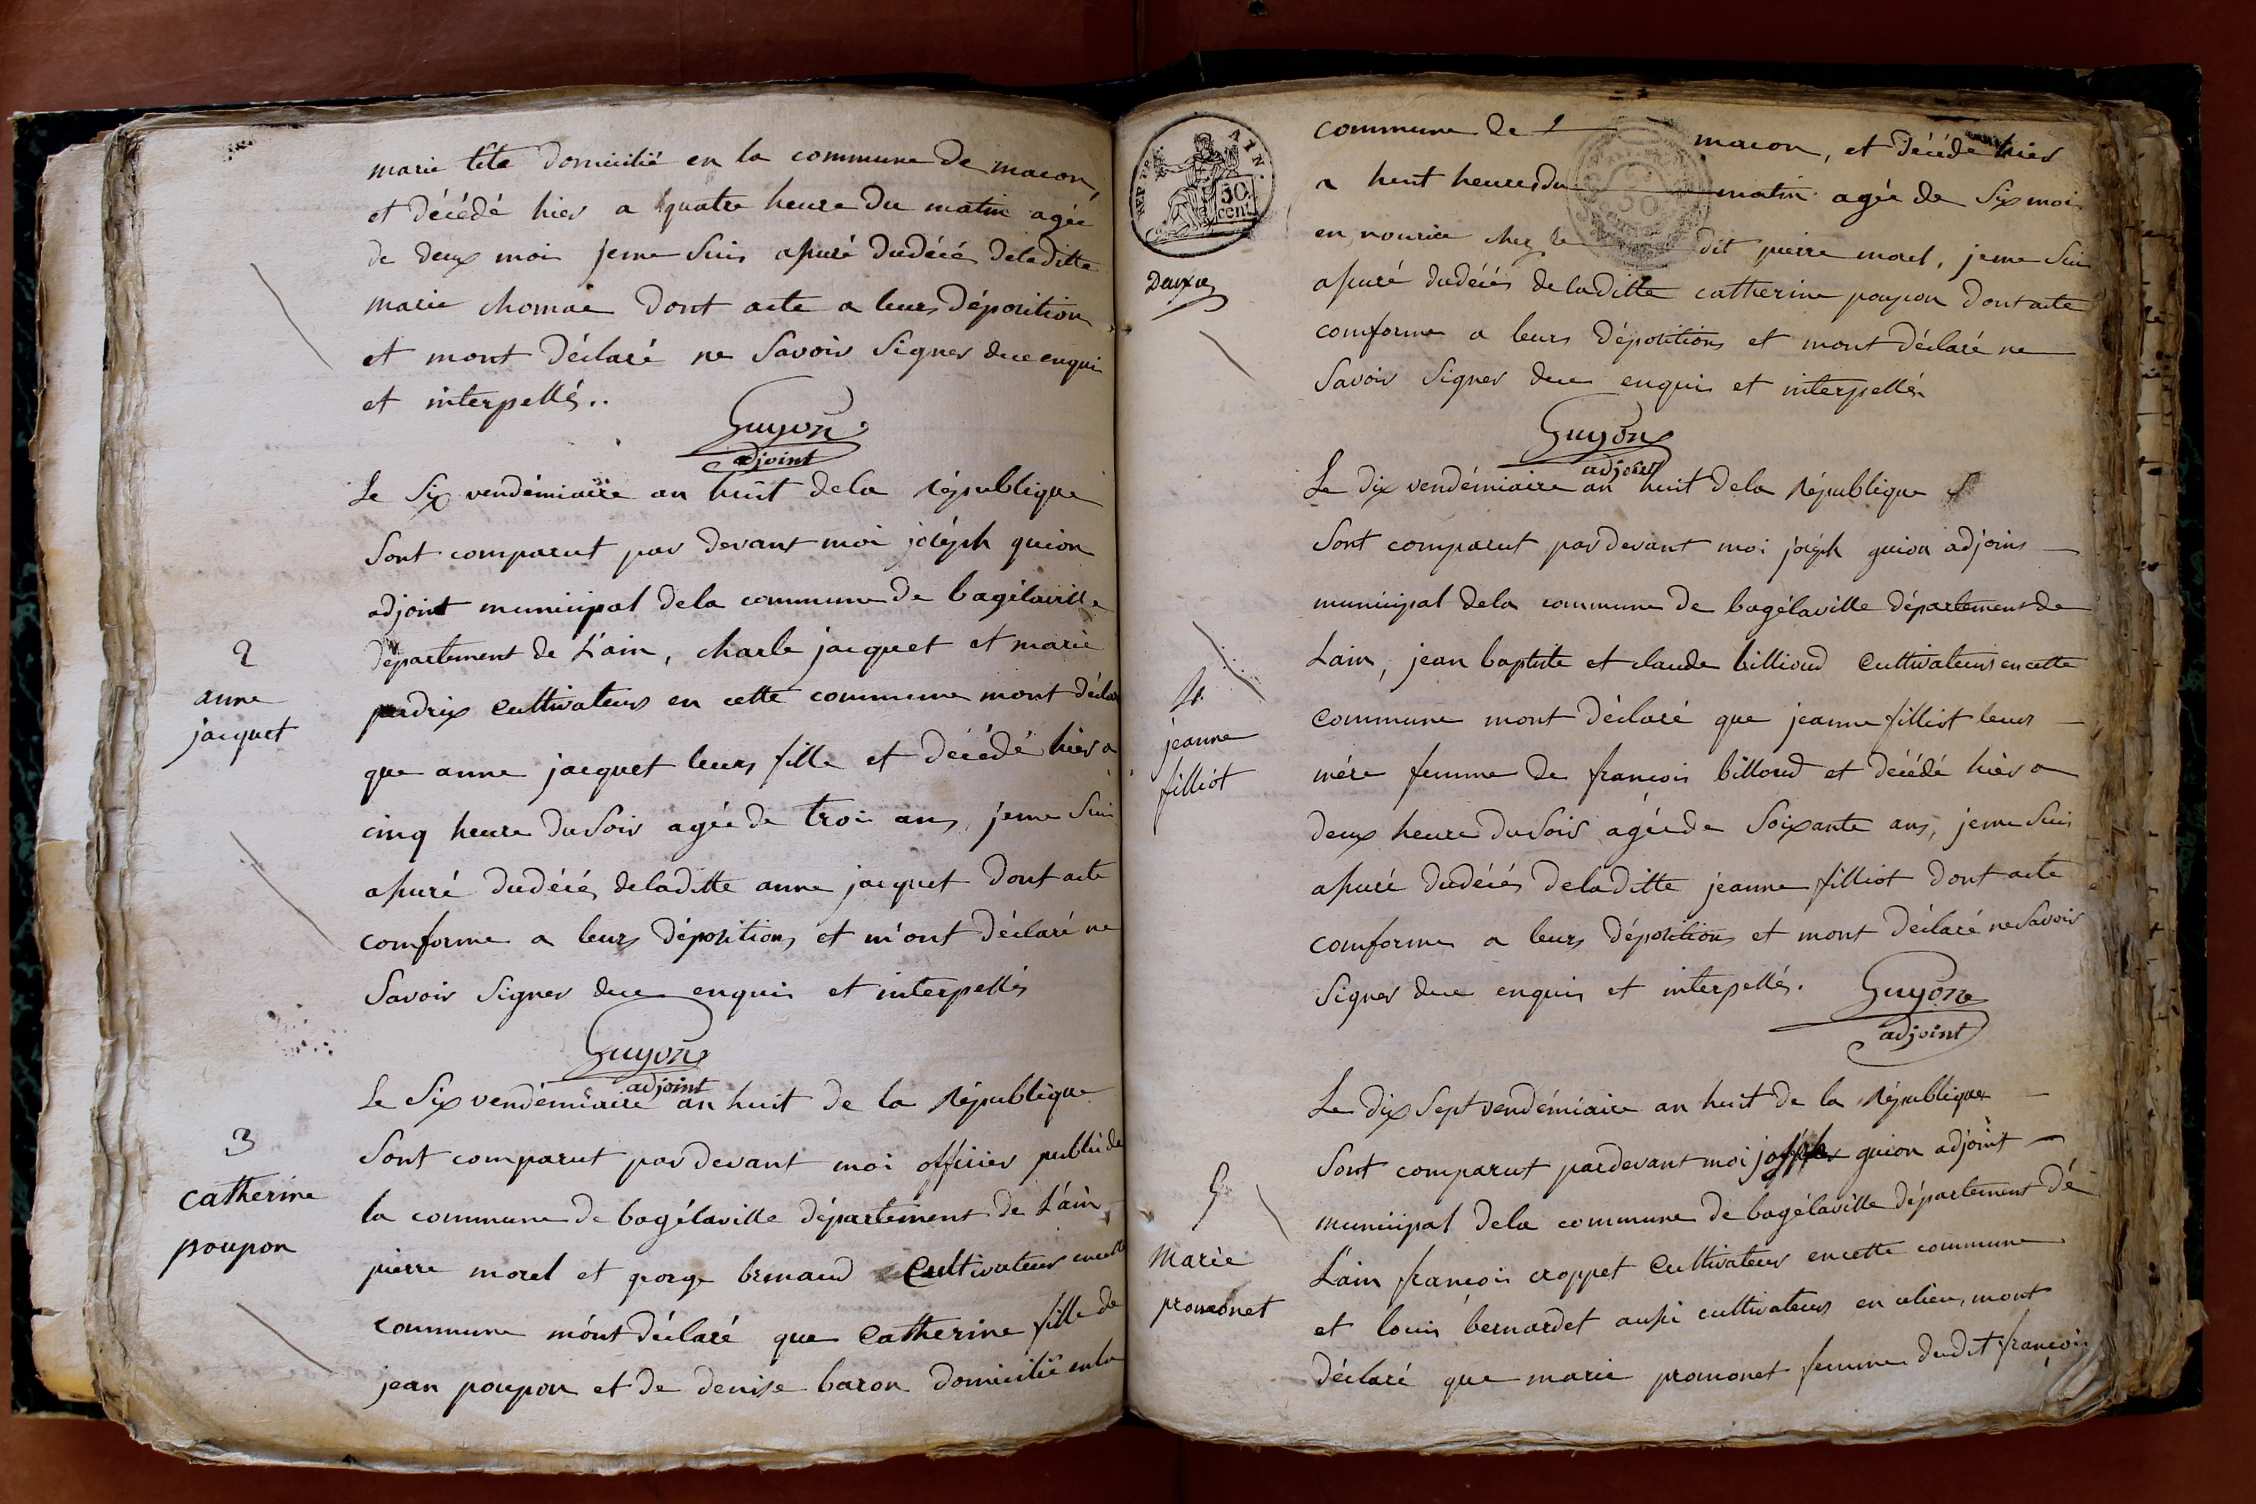 marie tête domicilié en la commune de macon,
et décédé hier a quatre heure du matin agée
de deux moi jeme suis assuré dudécé deladitte
marie chomae dont acte a leurs déposition
et mont déclaré ne savoir signer dece enqui
et interpellés..
Guyon
adjoint
2
anne
jacquet
Le six vendémiaire an huit dela république
sont comparut par devant moi joséph guion
adjoint municipal dela commune de bagélaville
département de L'ain, charle jacquet et marie
perdrix cultivateurs en cette commune mont décla
que anne jacquet leurs fille et décédé hier a
cinq heure du soir agée de troi ans, jeme sui
assuré dudécés deladitte anne jacquet dont acte
comforme a leurs dépositions et m'ont déclaré ne
savoir signer dece enquis et interpellés
Guyon
adjoint
3
catherine
poupon
Le six vendémiaire an huit de la république
sont comparut par devant moi officier public de
la commune de bagélaville département de L'ain
pierre morel et george cultivateurs en cette
commune m'ont déclaré que catherine fille de
jean poupon et de denise baron domicilié en la
REP. FR. AIN.
50
cent
Deuxe
commune de macon, et décédé hier
a huit heures du matin agée de six moi
en nourice chez le dit pierre morel, jeme sui
assuré dudécés deladitte catherine poupon dont acte
comforme a leurs dépositions et mont déclaré ne
savoir signer dece enquis et interpellés
Guyon
adjoint
4
jeanne
filliot
Le dix vendémiaire an huit dela république
sont comparut par devant moi joséph guion adjoins
municipal dela commune de bagélaville département de
Lain, jean baptiste et claude billioud cultivateurs en cette
commune mont déclaré que jeanne filliot leur
mére femme de francois billoud et décédé hièr a
deux heure du soir agée de soixante ans, jeme suis
assuré dudécés deladitte jeanne filliot dont acte
comforme a leurs dépositions et mont déclaré ne savoir
signer dece enquis et interpellés.
Guyon
adjoint
5
marie
promonet
Le dix sept vendémiaire an huit de la république
sont comparut pardevant moi joseph guion adjoint
municipal dela commune de bagélaville département dé
L'ain francois croppet cultivateur en cette commune
et louis bernardet aussi cultivateurs en celieu, mont
déclaré que marie promonet femme dudit francois